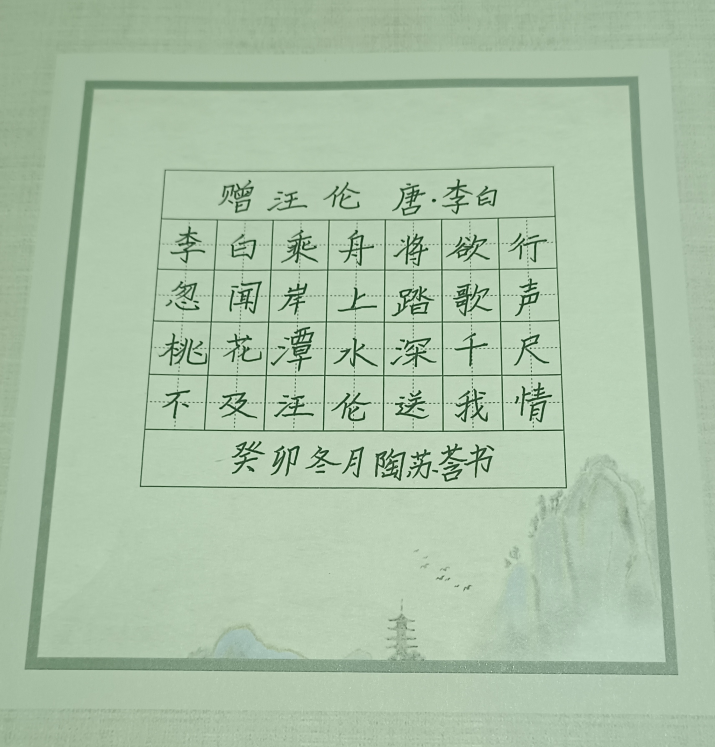 赠汪伦 唐·李白
李白乘舟将欲行
忽闻岸上踏歌声
桃花潭水深千尺
不及汪伦送我情
癸卯冬月陶苏荅书